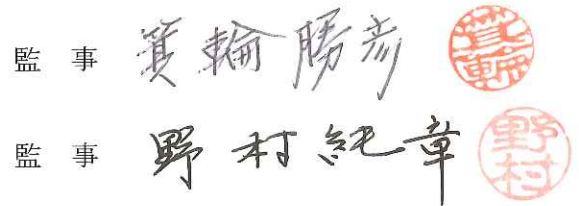 監事 箕輪勝彦 箕輪
監事 野村純章 野村